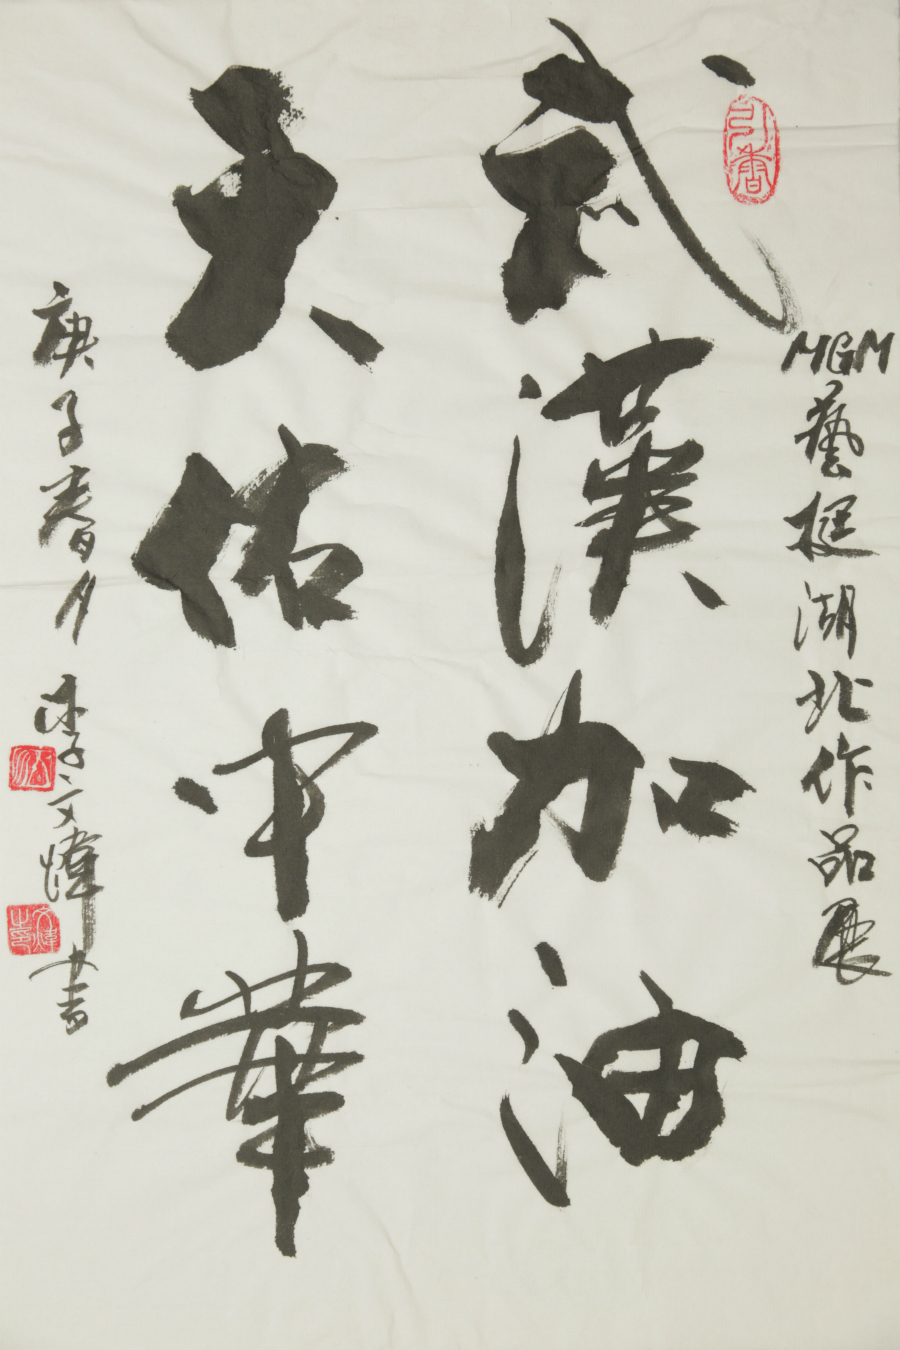 MGM藝挺湖北作品展
武漢加油
天佑中華
庚子春月李文煒書